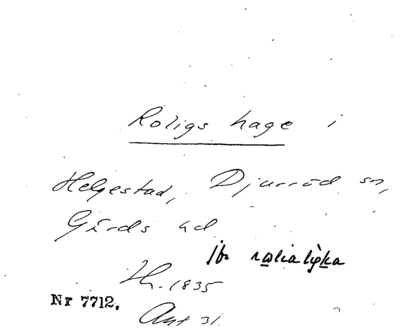 Roligs hage i
Helgestad, Djurröd sn,
Gärds hd
jbr
H. 1835
Nr 7712.
Ant 31.